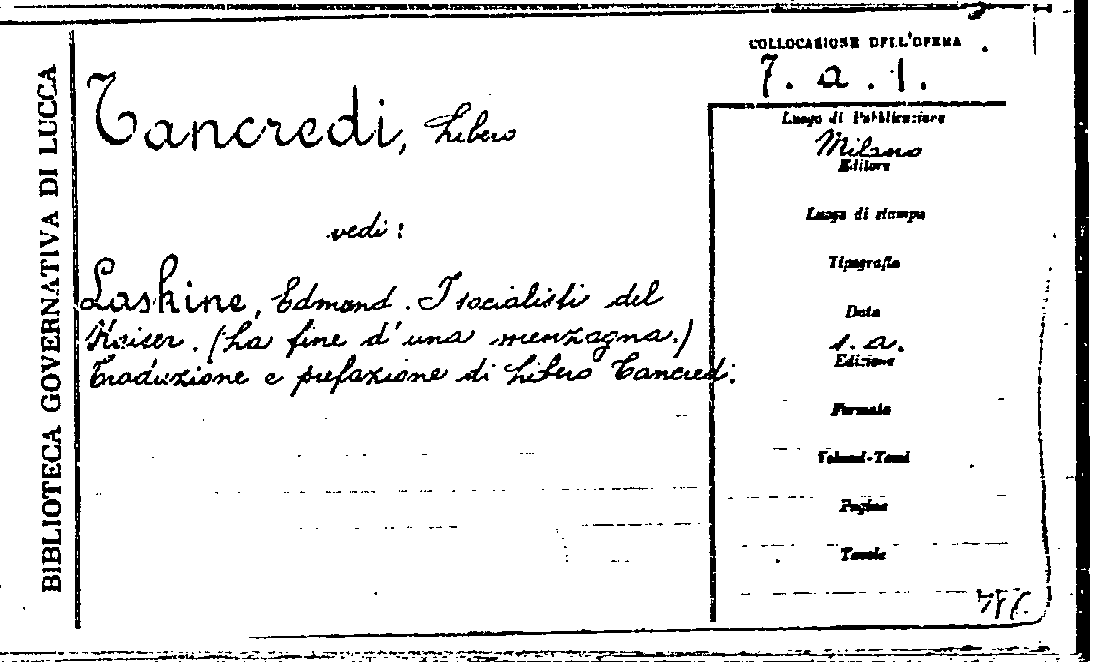 BIBLIOTECA GOVERNATIVA DI LUCCA
Tancredi, Libero
vedi:
Laskine, Edmond. I socialisti del
Kaiser. (La fine d'una menzogna.)
Traduzione e prefazione di Libero Tancredi.
COLLOCAZIONE DELL'OPERA
7. a. 1.
Luogo di Pubblicazione
Milano
Editore
Luogo di stampa
Tipografia
Data
s. a.
Edizione
Formato
Volumi-Tomi
Pagine
Tavole